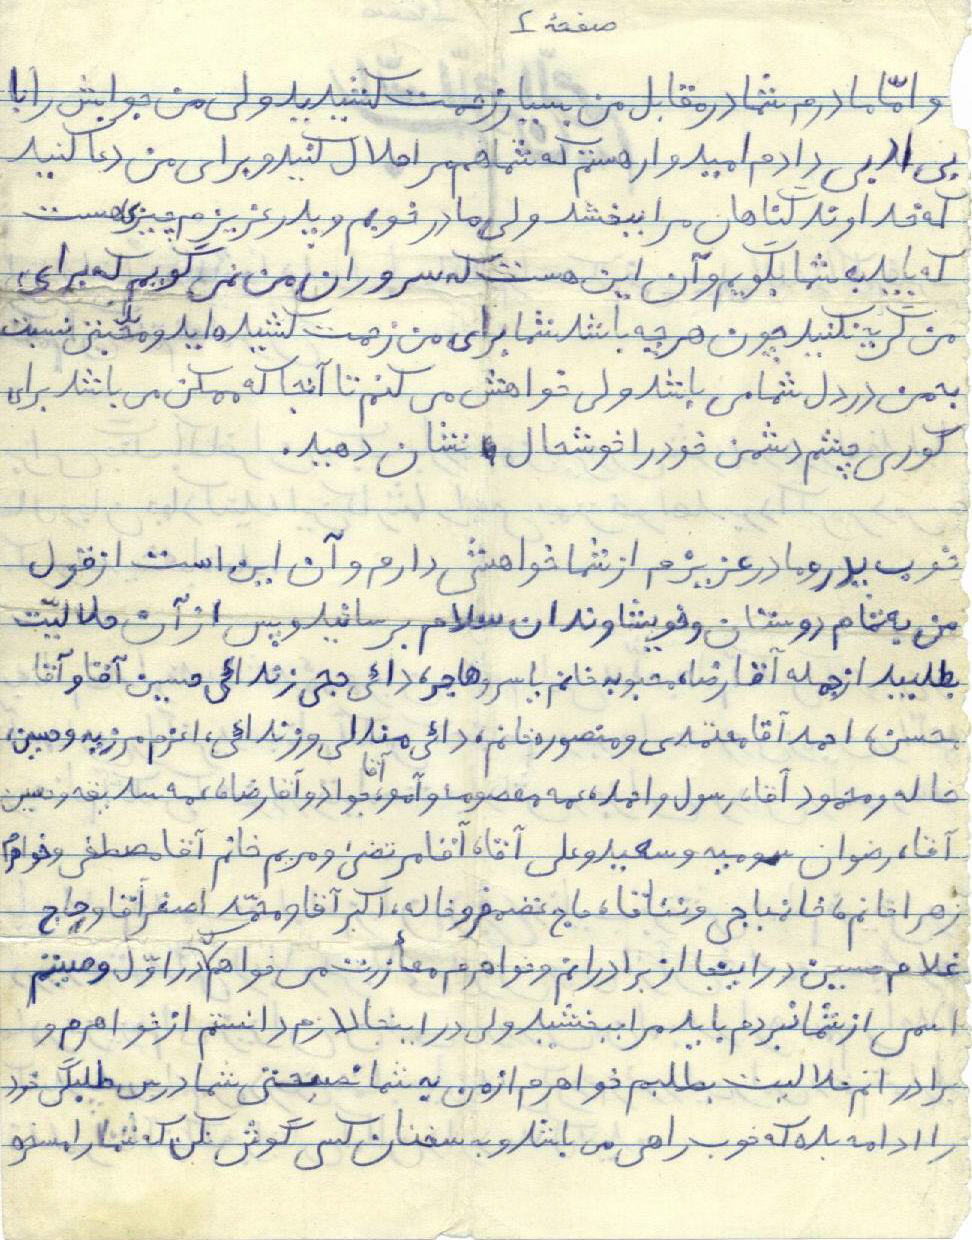 صفحهٔ ۲
و امّا مادرم شما در مقابل من بسیار زحمت کشیدید ولی من جوابش را با
بی ادبی دادم امیدوار هستم که شما هم مرا حلال کنید و برای من دعا کنید
که خداوند گناهان مرا ببخشد ولی مادر خوبم و پدر عزیزم چیزی هست
که باید به شما بگویم و آن این هست که سروران من نمی گویم که برای
من گریه نکنید چون هر چه باشد شما برای من زحمت کشیده اید و محبتی نسبت
به من در دل شما می باشد ولی خواهش می کنم تا آنجا که ممکن می باشد برای
کوری چشم دشمن خود را خوشحال نشان دهید.
خوب پدر و مادر عزیزم از شما خواهشی دارم و آن این است از قول
من به تمام دوستان و خویشاوندان سلام برسانید و پس از آن حلالیّت
بطلبید از جمله آقا رضا، محبوبه خانم یاسر و هاجر، دائی مجی زندائی حسین آقا و آقا
محسن، احمد آقا معتمدی و منصوره خانم، دائی مندلی و زندائی، اعزم مرزیه و حسین،
خاله و محمود آقا، رسول و احمد، عمه معصومه و آمو، آقا جواد و آقا رضا، عمه صدیقه و حسین
آقا، رضوان سومیه و سعید و علی آقا، آقا مرتضی و مریم خانم آقا مصطفی و خواهرم
زهرا خانم، خانباجی و ننه آقا، حاج غضنفر و خاله، اکبر آقا و محمّد اصغر آقا و حاج
غلام حسین در اینجا از برادرانم و خواهرم معأزرت می خواهم که در اوّل وصیتم
اسمی از شما نبردم باید مرا ببخشید ولی در اینجا لازم دانستم از خواهرم و
برادرانم حلالیت بطلبم خواهرم از من به شما نصیحتی شما درس طلبگی خود
را ادامه بده که خوب راهی می باشد و به سخنان کسی گوش نکن که شما را مسخره